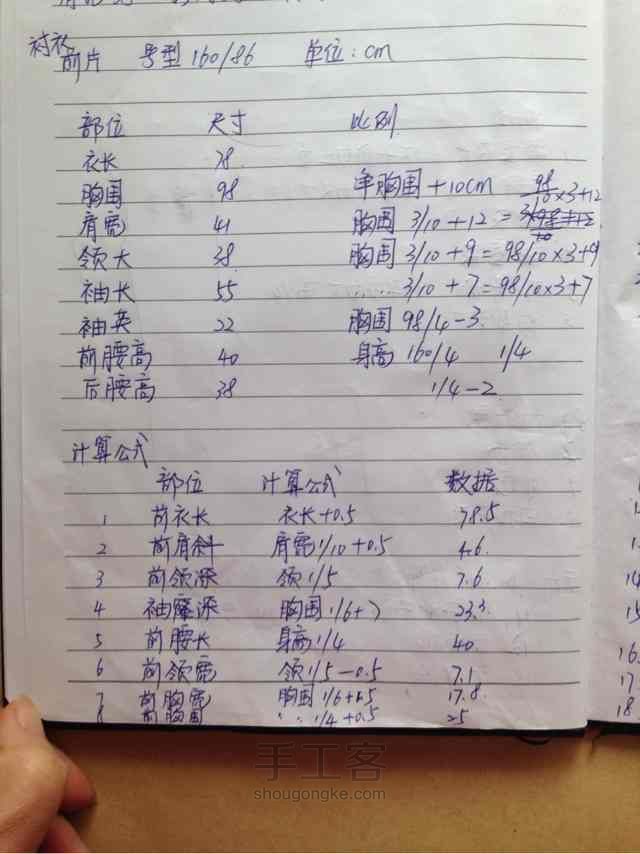 衬衣
前片 号型 160/86 单位：cm
部位 尺寸 比例
衣长 78
胸围 98 半胸围+10cm 98/10×3+12
肩宽 41 胸围 3/10+12 =
领大 38 胸围 3/10+9 = 98/10×3+9
袖长 55 ...... 3/10+7=98/10×3+7
袖英 22 胸围 98/4-3
前腰高 40 身高 160/4 1/4
后腰高 38 1/4-2
计算公式
部位 计算公式 数据
1 前衣长 衣长+0.5 78.5
2 前肩斜 肩宽1/10+0.5 4.6
3 前领深 领1/5 7.6
4 袖窿深 胸围1/6+7 23.3
5 前腰长 身高1/4 40
6 前领宽 领1/5-0.5 7.1
7 前胸宽 胸围1/6+1.5 17.8
8 前胸围 ‥ 1/4+0.5 25
14
15
16.
17.
18
手工客
shougongke.com